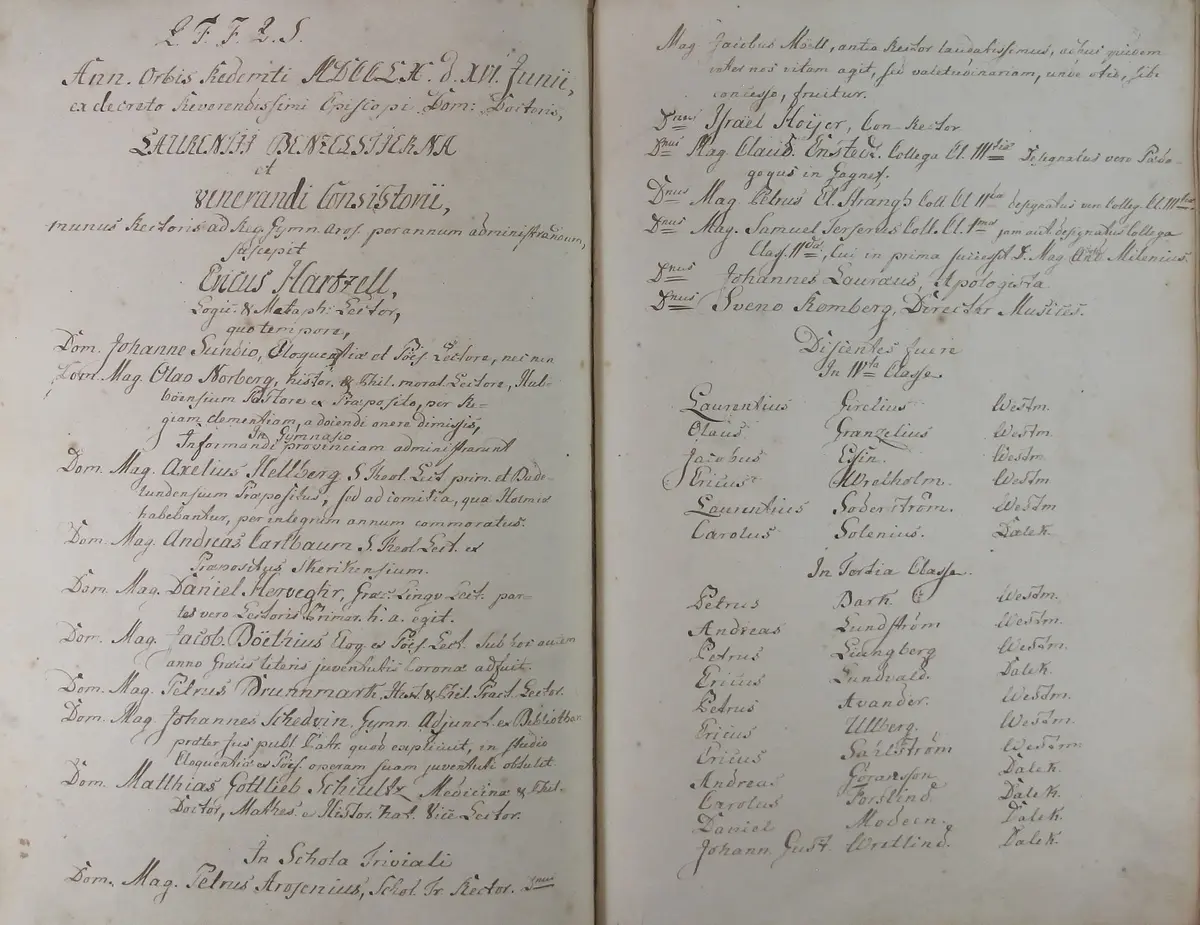 Q. F. F. Q. S.
Ann. Orbis Redemti MDCCLX. d. XVI. Junii,
ex decreto Reverendissimi Episcopi Dom: Doctoris,
LAURENTII BENZELSTIERNA
et
venerandi Consistorii,
munus Rectoris ad Reg. Gymn. Aros. per annum administrandum,
suscepit
Ericus Hartzell,
Logic. & Metaph: Lector,
quo tempore,
Dom. Johanne Sundio, Eloquentiæ et Poës. Lectore, nec non
Dom. Mag. Olao Norberg, histor. & Phil. moral. Lectore, Hub-
boënsium Pastore & Præposito, per Re-
giam clementiam, adocendi onere dimissis,
In Gymnasio
Informandi provinciam administrarunt
Dom. Mag. Axelius Kellberg. S. Theol. Lect. prim. et Bade-
lundensium Præpositus, sed ad comitia, quæ Holmiæ
habebantur, per integrum annum commoratus.
Dom. Mag. Andreas Carlbaum S. Theol. Lect. et
Præpositus Skerikensium.
Dom. Mag. Daniel Herveghr, Græc. Lingv. Lect. par-
tes vero Lectoris Primar. h. a. egit.
Dom. Mag. Jacob. Böethius Eloq. et Poës. Lect. Sub hoc autem
anno Græcis literis juventutis Coronæ adfuit.
Dom. Mag. Petrus Brunnmark. Hist. & Phil. Pract. Lector.
Dom. Mag. Johannes Schedvin, Gymn. Adjunct. et Bibliothe.
præter Jus publ. Patr. quod explicuit, in studio
Eloquentiæ et Poës. operam suam juventuti obtulit.
Dom. Matthias Gottlieb Schultz Medicinæ & Phil.
Doctor, Mathes. et Histor. nat. Vice Lector.
In Schola Triviali
Dom. Mag. Petrus Arosenius, Schol. Tr. Rector. Dnus
Mag. Jacobus Möell, antea Rector laudatissimus, adhuc quidem
inter nos vitam agit, sed valetudinariam, unde otio, sibi
concesso, fruitur.
Dnus Israël Hoijer, Con-Rector
Dnus Mag. Claud. Enstedt. Collega Cl. IIItiæ Designatus vero Pæda-
gogus in Gagnef.
Dnus Mag. Petrus El. Strangh Coll. Cl. IIdæ designatus vero Colleg. Cl. IIItiæ.
Dnus Mag. Samuel Terserus Coll. Cl. Imæ jam aut. designatus Collega
Class. IIdæ, cui in prima successit D. Mag. And. Milenius.
Dnus Johannes Lauræus, Apologista.
Dnus Sveno Romberg, Director Musices.
Discentes fuere
In IVta Classe
Laurentius Girelius Westm.
Olaus Granzelius Westm.
Jacobus Essin. Westm
Ericus Wretholm. Westm
Laurentius Söderström. Westm
Carolus Solenius. Dalek.
In Tertia Classe.
Petrus Bark. Westm.
Andreas Lundström Westm.
Petrus Liungberg Westm.
Ericus Lundvald. Dalek.
Petrus Avander. Westm.
Ericus Ullberg. Westm.
Ericus Sahlström Westm
Andreas Göransson Dalek.
Carolus Forslind. Dalek.
Daniel Modeen. Dalek.
Johann. Gust. Wretlind. Dalek.